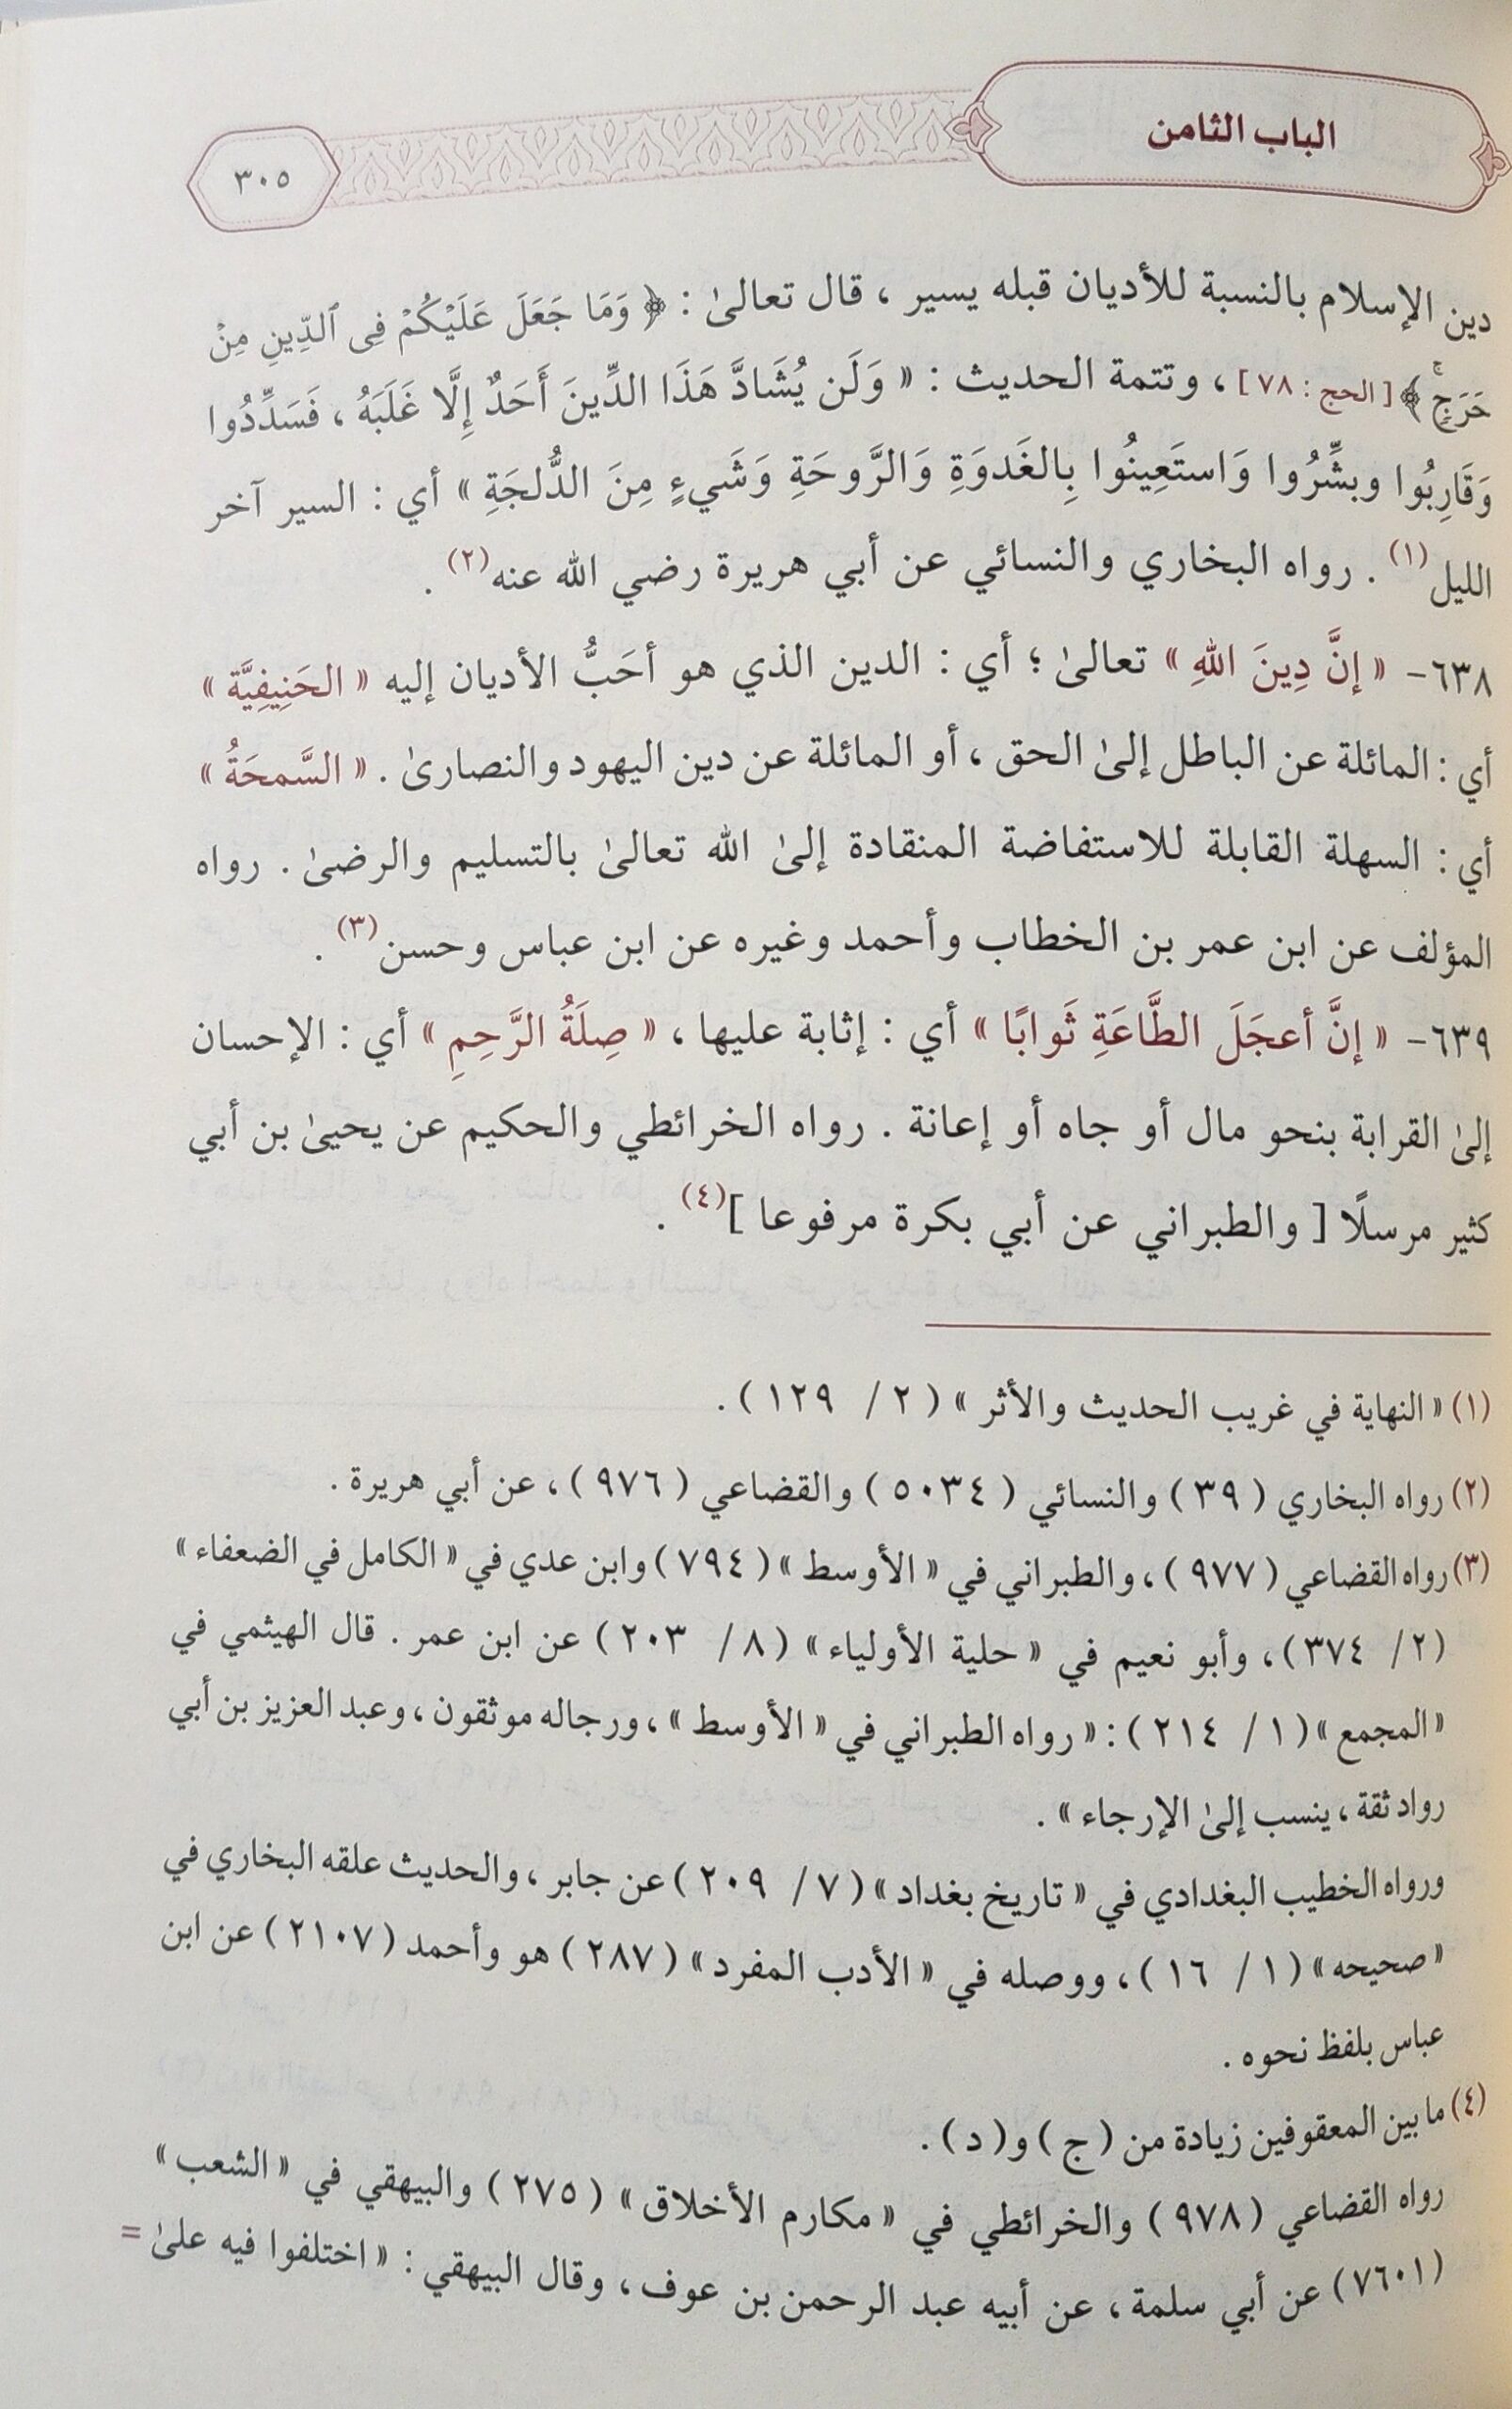 الباب الثامن
٣٠٥
دين الإسلام بالنسبة للأديان قبله يسير ، قال تعالىٰ : ﴿ وَمَا جَعَلَ عَلَيْكُمْ فِى ٱلدِّينِ مِنْ
حَرَجٍ ۚ﴾ [ الحج : ٧٨ ] ، وتتمة الحديث : « وَلَن يُشَادَّ هَذَا الدِّينَ أَحَدٌ إِلَّا غَلَبَهُ ، فَسَدِّدُوا
وَقَارِبُوا وبشِّرُوا وَاستَعِينُوا بِالغَدوَةِ وَالرَّوحَةِ وَشَيءٍ مِنَ الدُّلجَةِ » أي : السير آخر
الليل(١) . رواه البخاري والنسائي عن أبي هريرة رضي الله عنه(٢) .
٦٣٨- « إنَّ دِينَ اللهِ » تعالىٰ ؛ أي : الدين الذي هو أحَبُّ الأديان إليه « الحَنِيفِيَّة »
أي : المائلة عن الباطل إلىٰ الحق ، أو المائلة عن دين اليهود والنصارىٰ . « السَّمحَةُ »
أي : السهلة القابلة للاستفاضة المنقادة إلىٰ الله تعالىٰ بالتسليم والرضىٰ . رواه
المؤلف عن ابن عمر بن الخطاب وأحمد وغيره عن ابن عباس وحسن(٣) .
٦٣٩- « إنَّ أعجَلَ الطَّاعَةِ ثَوابًا » أي : إثابة عليها ، « صِلَةُ الرَّحِمِ » أي : الإحسان
إلىٰ القرابة بنحو مال أو جاه أو إعانة . رواه الخرائطي والحكيم عن يحيىٰ بن أبي
كثير مرسلًا [ والطبراني عن أبي بكرة مرفوعا ](٤) .
(١) « النهاية في غريب الحديث والأثر » ( ٢ / ١٢٩ ) .
(٢) رواه البخاري ( ٣٩ ) والنسائي ( ٥٠٣٤ ) والقضاعي ( ٩٧٦ ) ، عن أبي هريرة .
(٣) رواه القضاعي ( ٩٧٧ ) ، والطبراني في « الأوسط » ( ٧٩٤ ) وابن عدي في « الكامل في الضعفاء »
( ٢ / ٣٧٤ ) ، وأبو نعيم في « حلية الأولياء » ( ٨ / ٢٠٣ ) عن ابن عمر . قال الهيثمي في
« المجمع » ( ١ / ٢١٤ ) : « رواه الطبراني في « الأوسط » ، ورجاله موثقون ، وعبد العزيز بن أبي
رواد ثقة ، ينسب إلىٰ الإرجاء » .
ورواه الخطيب البغدادي في « تاريخ بغداد » ( ٧ / ٢٠٩ ) عن جابر ، والحديث علقه البخاري في
« صحيحه » ( ١ / ١٦ ) ، ووصله في « الأدب المفرد » ( ٢٨٧ ) هو وأحمد ( ٢١٠٧ ) عن ابن
عباس بلفظ نحوه .
(٤) ما بين المعقوفين زيادة من ( ج ) و ( د ) .
رواه القضاعي ( ٩٧٨ ) والخرائطي في « مكارم الأخلاق » ( ٢٧٥ ) والبيهقي في « الشعب »
( ٧٦٠١ ) عن أبي سلمة ، عن أبيه عبد الرحمن بن عوف ، وقال البيهقي : « اختلفوا فيه علىٰ =